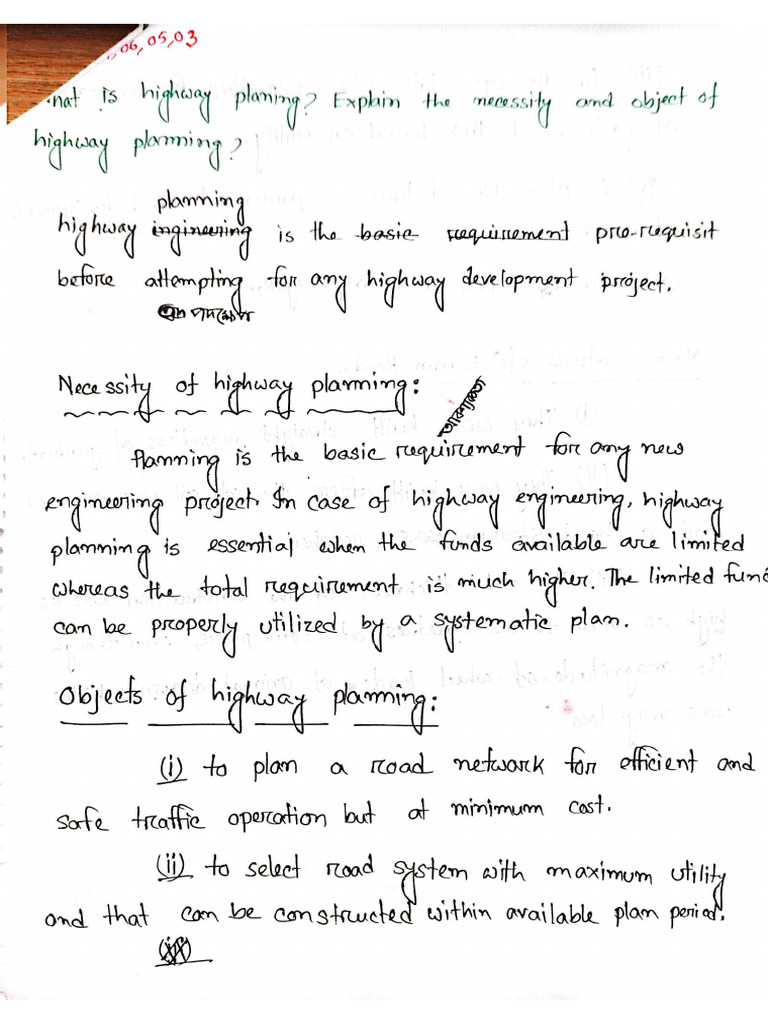 06, 05, 03
hat is highway planing? Explain the necessity and object of
highway planning?
planning
highway engineering is the basic requirement pre-requisit
before attempting for any highway development project.
পদক্ষেপ
Necessity of highway planning:
Planning is the basic requirement for any new
engineering project. In case of highway engineering, highway
planning is essential when the funds available are limited
whereas the total requirement is much higher. The limited fund
can be properly utilized by a systematic plan.
Objects of highway planning:
(i) to plan a road network for efficient and
safe traffic operation but at minimum cost.
(ii) to select road system with maximum utility
and that can be constructed within available plan period.